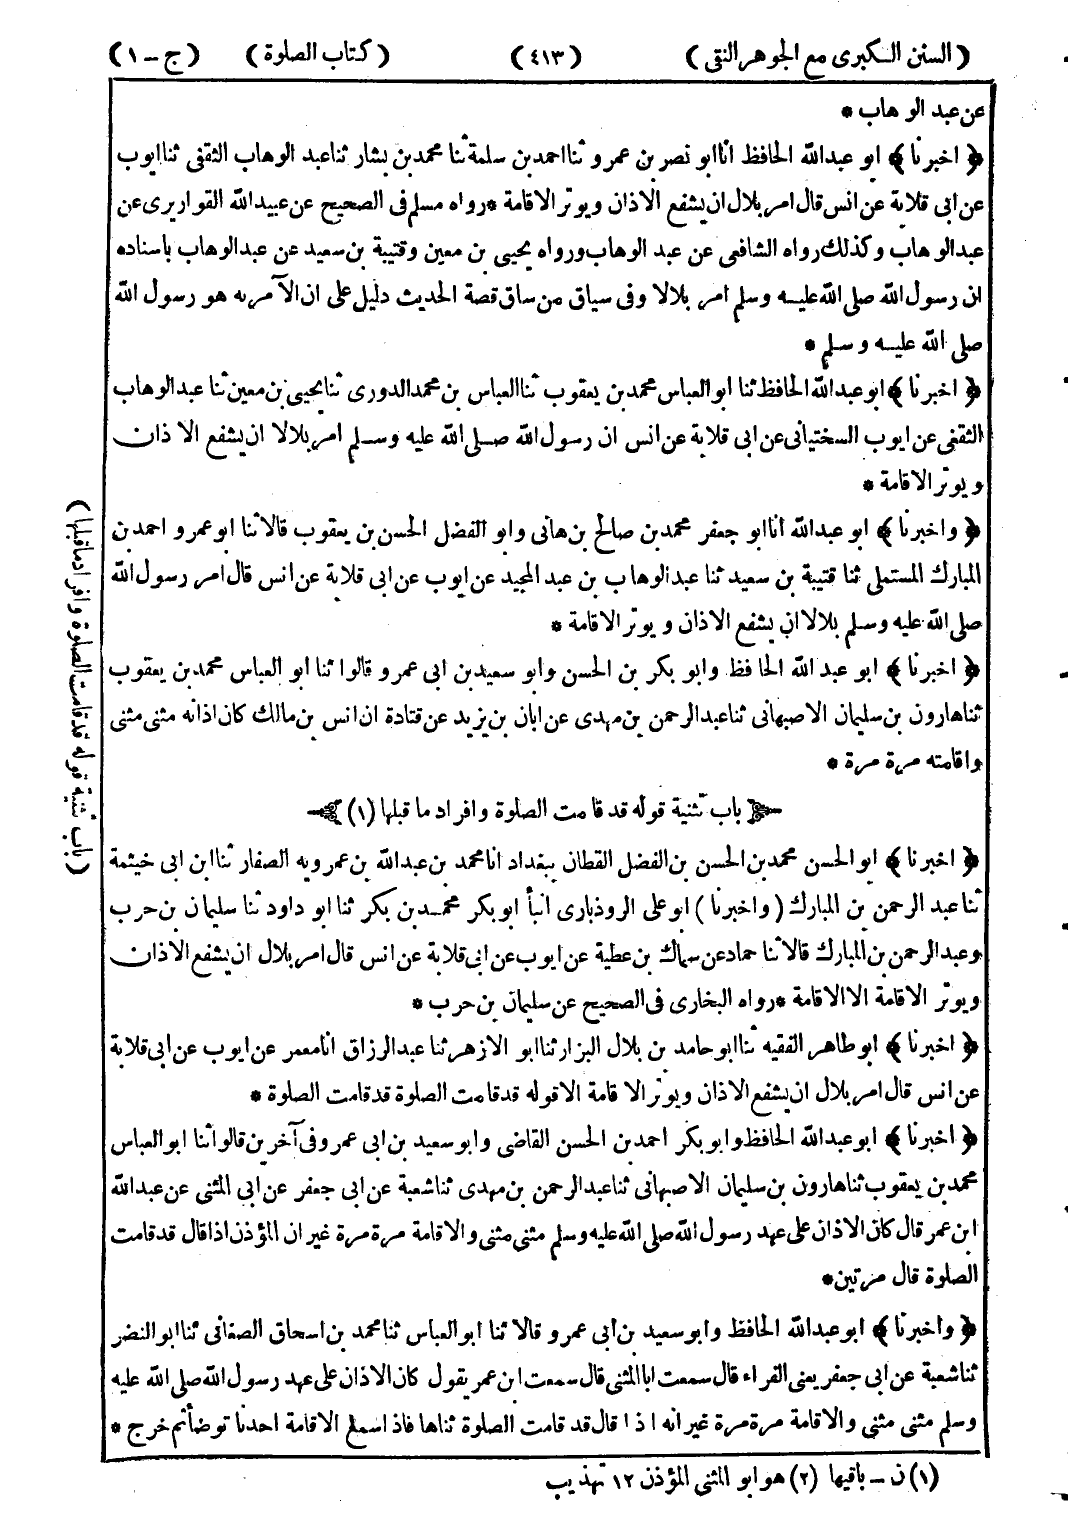 (السنن الكبرى مع الجوهر النقى) (٤١٣) (كتاب الصلوة) (ج - ١)
عن عبد الوهاب *
﴿ اخبرنا ﴾ ابو عبدالله الحافظ انا ابو نصر بن عمرو ثنا احمد بن سلمة ثنا محمد بن بشار ثنا عبد الوهاب الثقفى ثنا ايوب
عن ابى قلابة عن انس قال امر بلال ان يشفع الاذان ويوتر الاقامة * رواه مسلم فى الصحيح عن عبيدالله القواريرى عن
عبدالوهاب وكذلك رواه الشافعى عن عبد الوهاب ورواه يحيى بن معين وقتيبة بن سعيد عن عبدالوهاب باسناده
ان رسول الله صلى الله عليه وسلم امر بلالا وفى سياق من ساق قصة الحديث دليل على ان الآمر به هو رسول الله
صلى الله عليه وسلم *
﴿ اخبرنا ﴾ ابو عبدالله الحافظ ثنا ابو العباس محمد بن يعقوب ثنا العباس بن محمد الدورى ثنا يحيى بن معين ثنا عبدالوهاب
الثقفى عن ايوب السختيانى عن ابى قلابة عن انس ان رسول الله صلى الله عليه وسلم امر بلالا ان يشفع الاذان
ويوتر الاقامة *
﴿ واخبرنا ﴾ ابو عبدالله انا ابو جعفر محمد بن صالح بن هانى وابو الفضل الحسن بن يعقوب قالا ثنا ابو عمرو احمد بن
المبارك المستملى ثنا قتيبة بن سعيد ثنا عبدالوهاب بن عبد المجيد عن ايوب عن ابى قلابة عن انس قال امر رسول الله
صلى الله عليه وسلم بلالا ان يشفع الاذان ويوتر الاقامة *
﴿ اخبرنا ﴾ ابو عبد الله الحافظ وابو بكر بن الحسن وابو سعيد بن ابى عمرو قالوا ثنا ابو العباس محمد بن يعقوب
ثنا هارون بن سليمان الاصبهانى ثنا عبدالرحمن بن مهدى عن ابان بن يزيد عن قتادة ان انس بن مالك كان اذانه مثنى مثنى
واقامته مرة مرة *
باب تثنية قوله قد قامت الصلوة وافراد ما قبلها (١)
﴿ اخبرنا ﴾ ابو الحسن محمد بن الحسن بن الفضل القطان ببغداد انا محمد بن عبدالله بن عمرويه الصفار ثنا ابن ابى خيثمة
ثنا عبد الرحمن بن المبارك (واخبرنا) ابو على الروذبارى انبأ ابو بكر محمد بن بكر ثنا ابو داود ثنا سليمان بن حرب
وعبدالرحمن بن المبارك قالا ثنا حماد عن سماك بن عطية عن ايوب عن ابى قلابة عن انس قال امر بلال ان يشفع الاذان
ويوتر الاقامة الا الاقامة * رواه البخارى فى الصحيح عن سليمان بن حرب *
﴿ اخبرنا ﴾ ابو طاهر الفقيه ثنا ابو حامد بن بلال البزار ثنا ابو الازهر ثنا عبدالرزاق انا معمر عن ايوب عن ابى قلابة
عن انس قال امر بلال ان يشفع الاذان ويوتر الاقامة الا قوله قد قامت الصلوة قد قامت الصلوة *
﴿ اخبرنا ﴾ ابو عبدالله الحافظ وابو بكر احمد بن الحسن القاضى وابو سعيد بن ابى عمرو فى آخرين قالوا ثنا ابو العباس
محمد بن يعقوب ثنا هارون بن سليمان الاصبهانى ثنا عبدالرحمن بن مهدى ثنا شعبة عن ابى جعفر عن ابى المثنى عن عبدالله
ابن عمر قال كان الاذان على عهد رسول الله صلى الله عليه وسلم مثنى مثنى والاقامة مرة مرة غير ان المؤذن اذا قال قد قامت
الصلوة قال مرتين *
﴿ واخبرنا ﴾ ابو عبدالله الحافظ وابو سعيد بن ابى عمرو قالا ثنا ابو العباس ثنا محمد بن اسحاق الصغانى ثنا ابو النضر
ثنا شعبة عن ابى جعفر يعنى الفراء قال سمعت ابا المثنى قال سمعت ابن عمر يقول كان الاذان على عهد رسول الله صلى الله عليه
وسلم مثنى مثنى والاقامة مرة مرة غير انه اذا قال قد قامت الصلوة ثناها فاذا سمع الاقامة احدنا توضأ ثم خرج *
(١) ن - باقيها (٢) هو ابو المثنى المؤذن ١٢ تهذيب
(باب تثنية قوله قد قامت الصلوة وافراد ما قبلها)